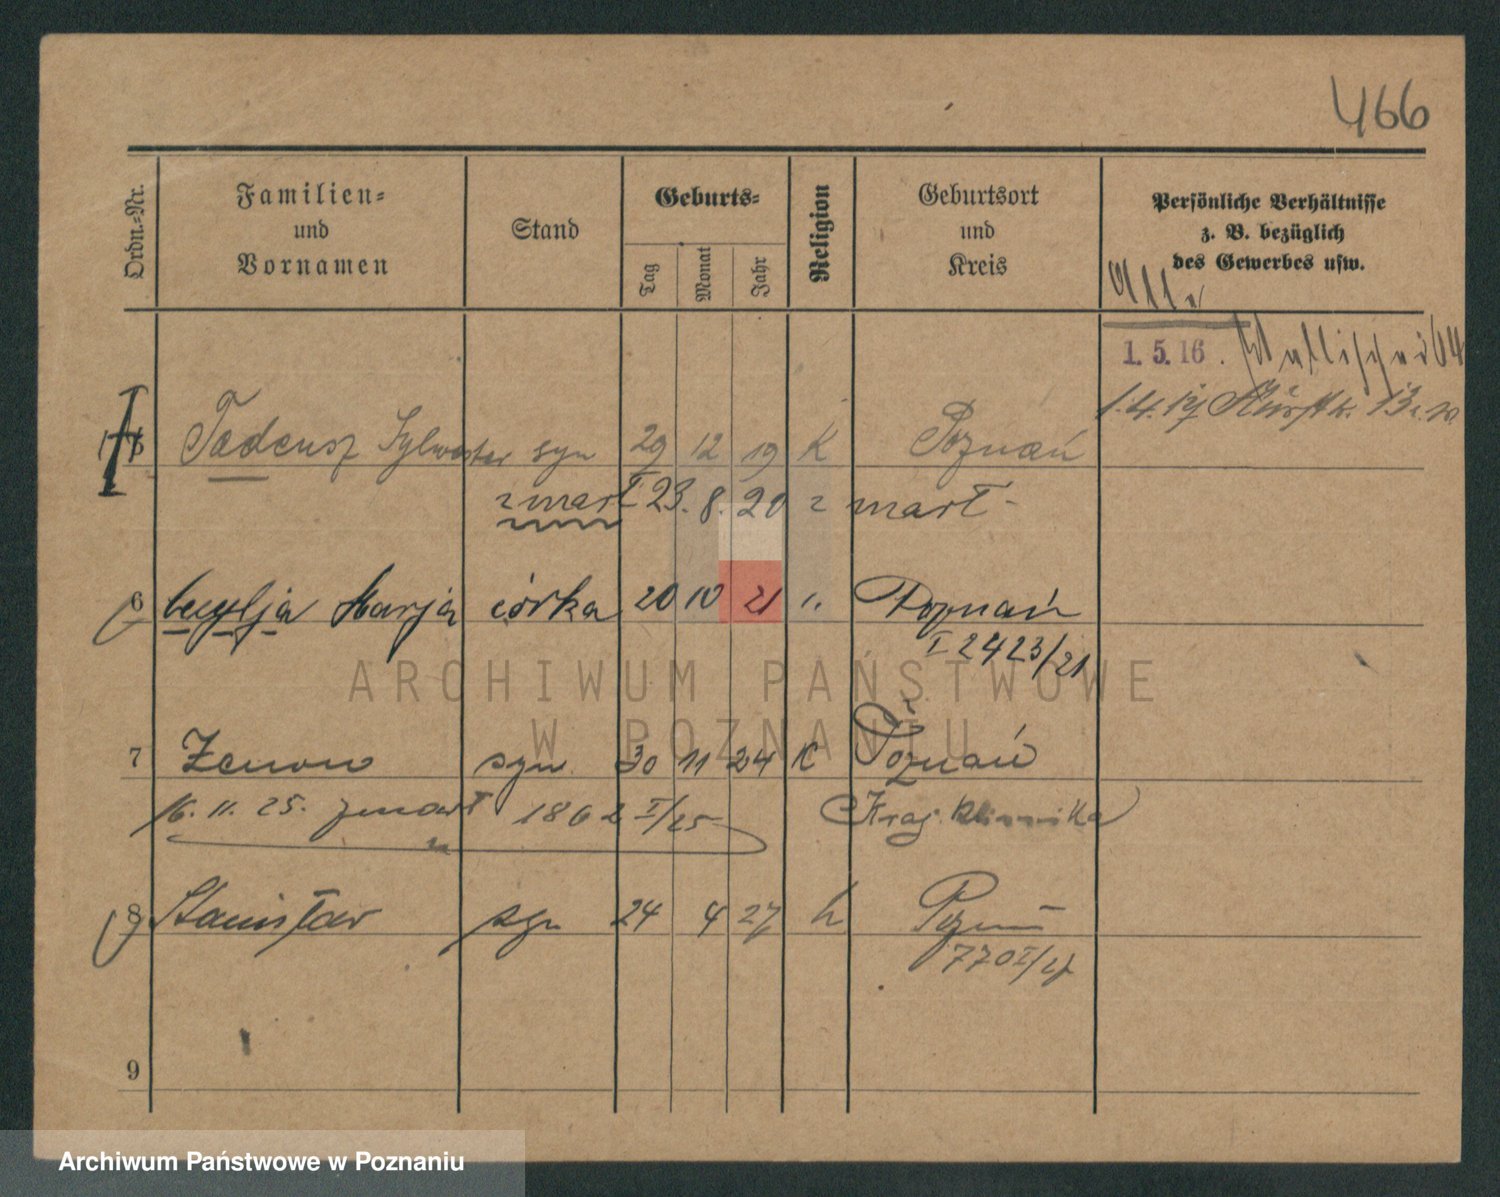 466
Ordn.-Nr.
Familien-
und
Vornamen
Stand
Geburts-
Tag
Monat
Jahr
Religion
Geburtsort
und
Kreis
Persönliche Verhältnisse
z. B. bezüglich
des Gewerbes usw.
1. 5. 16.
1.4.19
5 Tadeusz Sylwester syn 29 12 19 K Poznań
zmarł 23. 8. 20 zmarł -
6 Marja córka 20 10 21 Poznań
I 2423/21
7 Zenon syn 30 11 24 K Poznań
16. 11. 25. zmarł 1862 I/25 Kraj. klinika
8 Stanisław syn 24 4 27 k Pozn
770 I/27
9
ARCHIWUM PAŃSTWOWE
W POZNANIU
Archiwum Państwowe w Poznaniu